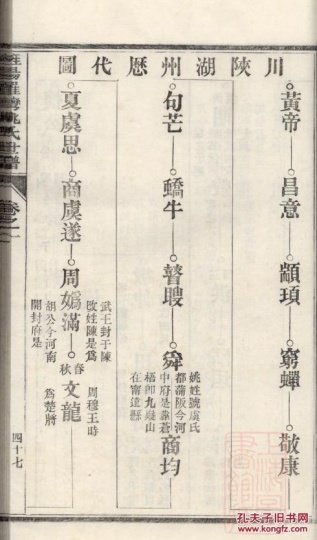 川陝湖州歷代圖
黃帝—昌意—顓頊—窮蟬—敬康
句芒—蟜牛—瞽瞍—舜—商均
姚姓號虞氏
都蒲阪今河
中府是葬蒼
梧卽九疑山
在甯遠縣
夏虞思—商虞遂—周嬀滿—春秋文龍
武王封于陳
改姓陳是爲
胡公今河南
開封府是
周穆王時
爲楚將
姚氏世譜
卷之
四十七
孔夫子旧书网